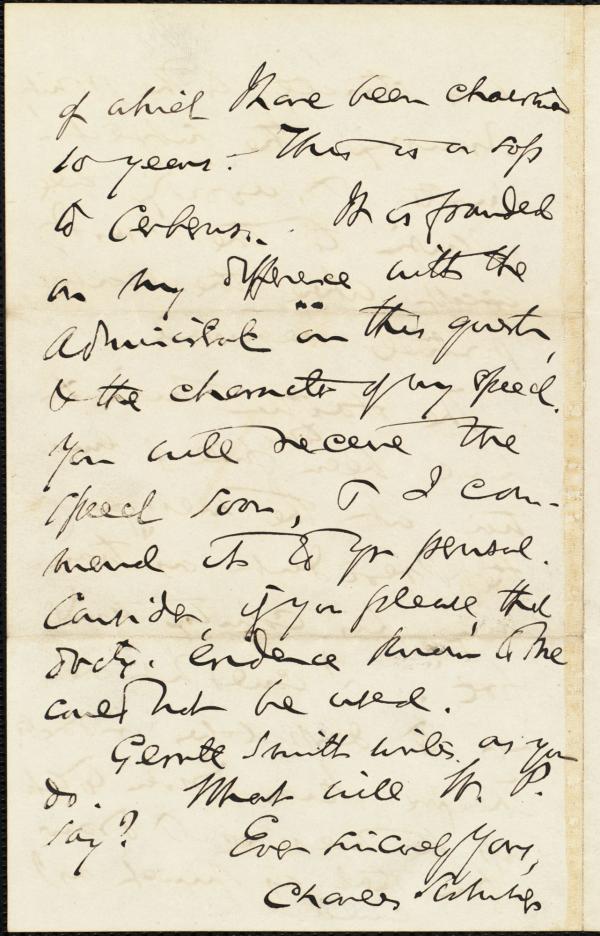 of which I have been chairman
10 years. - This is a sop
to Cerberus. It is founded
on my difference with the
Administrat on this questn,
& the character of my speech.
You will receive the
speech soon, & I com-
mend it to yr perusal.
Consider, if you please, that
docty. evidence known to me
could not be used.
Gerritt Smith writes as you
do. What will W. P.
say?
Ever sincerely Yours,
Charles Sumner